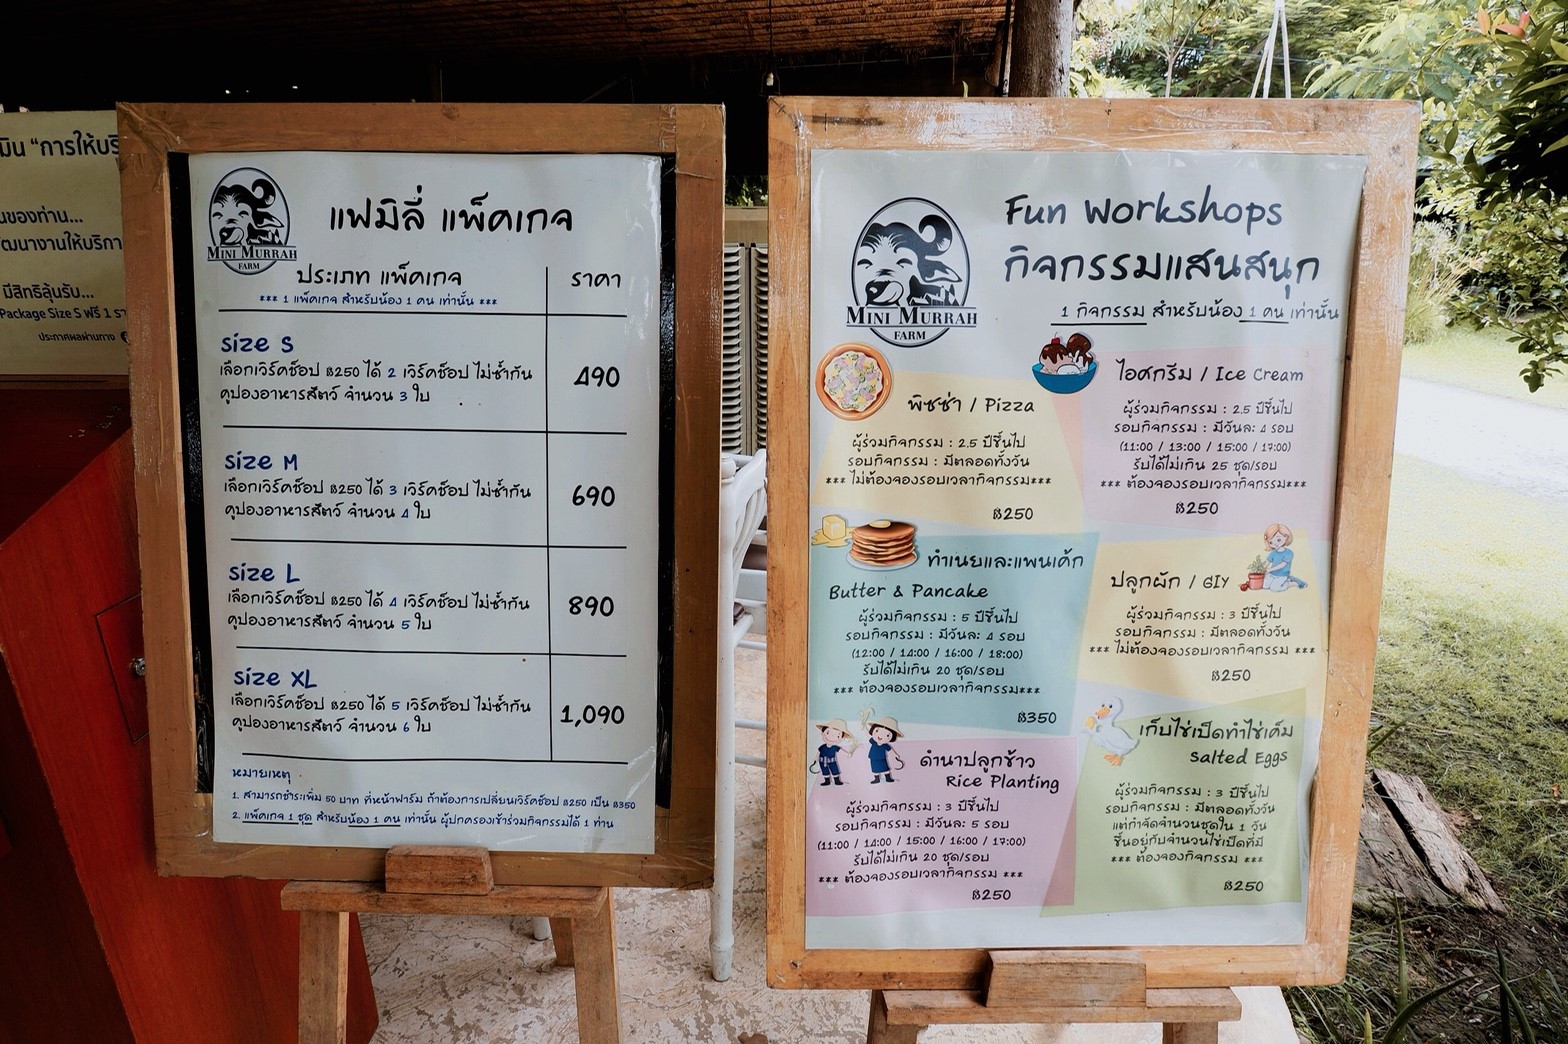 มิน "การให้บริ
นของท่าน...
ัฒนางานให้บริกา
มีสิทธิลุ้นรับ...
Package Size S ฟรี 1 รา
ประกาศผลผ่านทาง
MINI MURRAH
FARM
แฟมิลี่ แพ็คเกจ
ประเภท แพ็คเกจ
ราคา
*** 1 แพ็คเกจ สำหรับน้อง 1 คน เท่านั้น ***
size S
เลือกเวิร์คช็อป ฿250 ได้ 2 เวิร์คช็อป ไม่ซ้ำกัน
คูปองอาหารสัตว์ จำนวน 3 ใบ
490
size M
เลือกเวิร์คช็อป ฿250 ได้ 3 เวิร์คช็อป ไม่ซ้ำกัน
คูปองอาหารสัตว์ จำนวน 4 ใบ
690
size L
เลือกเวิร์คช็อป ฿250 ได้ 4 เวิร์คช็อป ไม่ซ้ำกัน
คูปองอาหารสัตว์ จำนวน 5 ใบ
890
size XL
เลือกเวิร์คช็อป ฿250 ได้ 5 เวิร์คช็อป ไม่ซ้ำกัน
คูปองอาหารสัตว์ จำนวน 6 ใบ
1,090
หมายเหตุ
1. สามารถชำระเพิ่ม 50 บาท ที่หน้าฟาร์ม ถ้าต้องการเปลี่ยนเวิร์คช็อป ฿250 เป็น ฿350
2. แพ็คเกจ 1 ชุด สำหรับน้อง 1 คน เท่านั้น ผู้ปกครองเข้าร่วมกิจกรรมได้ 1 ท่าน
MINI MURRAH
FARM
Fun Workshops
กิจกรรมแสนสนุก
1 กิจกรรม สำหรับน้อง 1 คน เท่านั้น
พิซซ่า / Pizza
ผู้ร่วมกิจกรรม : 2.5 ปีขึ้นไป
รอบกิจกรรม : มีตลอดทั้งวัน
*** ไม่ต้องจองรอบเวลากิจกรรม***
฿250
ไอศกรีม / Ice Cream
ผู้ร่วมกิจกรรม : 2.5 ปีขึ้นไป
รอบกิจกรรม : มีวันละ 4 รอบ
(11:00 / 13:00 / 15:00 / 17:00)
รับได้ไม่เกิน 25 ชุด/รอบ
*** ต้องจองรอบเวลากิจกรรม***
฿250
ทำเนยและแพนเค้ก
Butter & Pancake
ผู้ร่วมกิจกรรม : 5 ปีขึ้นไป
รอบกิจกรรม : มีวันละ 4 รอบ
(12:00 / 14:00 / 16:00 / 18:00)
รับได้ไม่เกิน 20 ชุด/รอบ
*** ต้องจองรอบเวลากิจกรรม***
฿350
ปลูกผัก / GIY
ผู้ร่วมกิจกรรม : 3 ปีขึ้นไป
รอบกิจกรรม : มีตลอดทั้งวัน
*** ไม่ต้องจองรอบเวลากิจกรรม ***
฿250
ดำนาปลูกข้าว
Rice Planting
ผู้ร่วมกิจกรรม : 3 ปีขึ้นไป
รอบกิจกรรม : มีวันละ 5 รอบ
(11:00 / 14:00 / 15:00 / 16:00 / 17:00)
รับได้ไม่เกิน 20 ชุด/รอบ
*** ต้องจองรอบเวลากิจกรรม ***
฿250
เก็บไข่เป็ดทำไข่เค็ม
Salted Eggs
ผู้ร่วมกิจกรรม : 3 ปีขึ้นไป
รอบกิจกรรม : มีตลอดทั้งวัน
แต่จำกัดจำนวนชุดใน 1 วัน
ขึ้นอยู่กับจำนวนไข่เป็ดที่มี
*** ต้องจองกิจกรรม ***
฿250